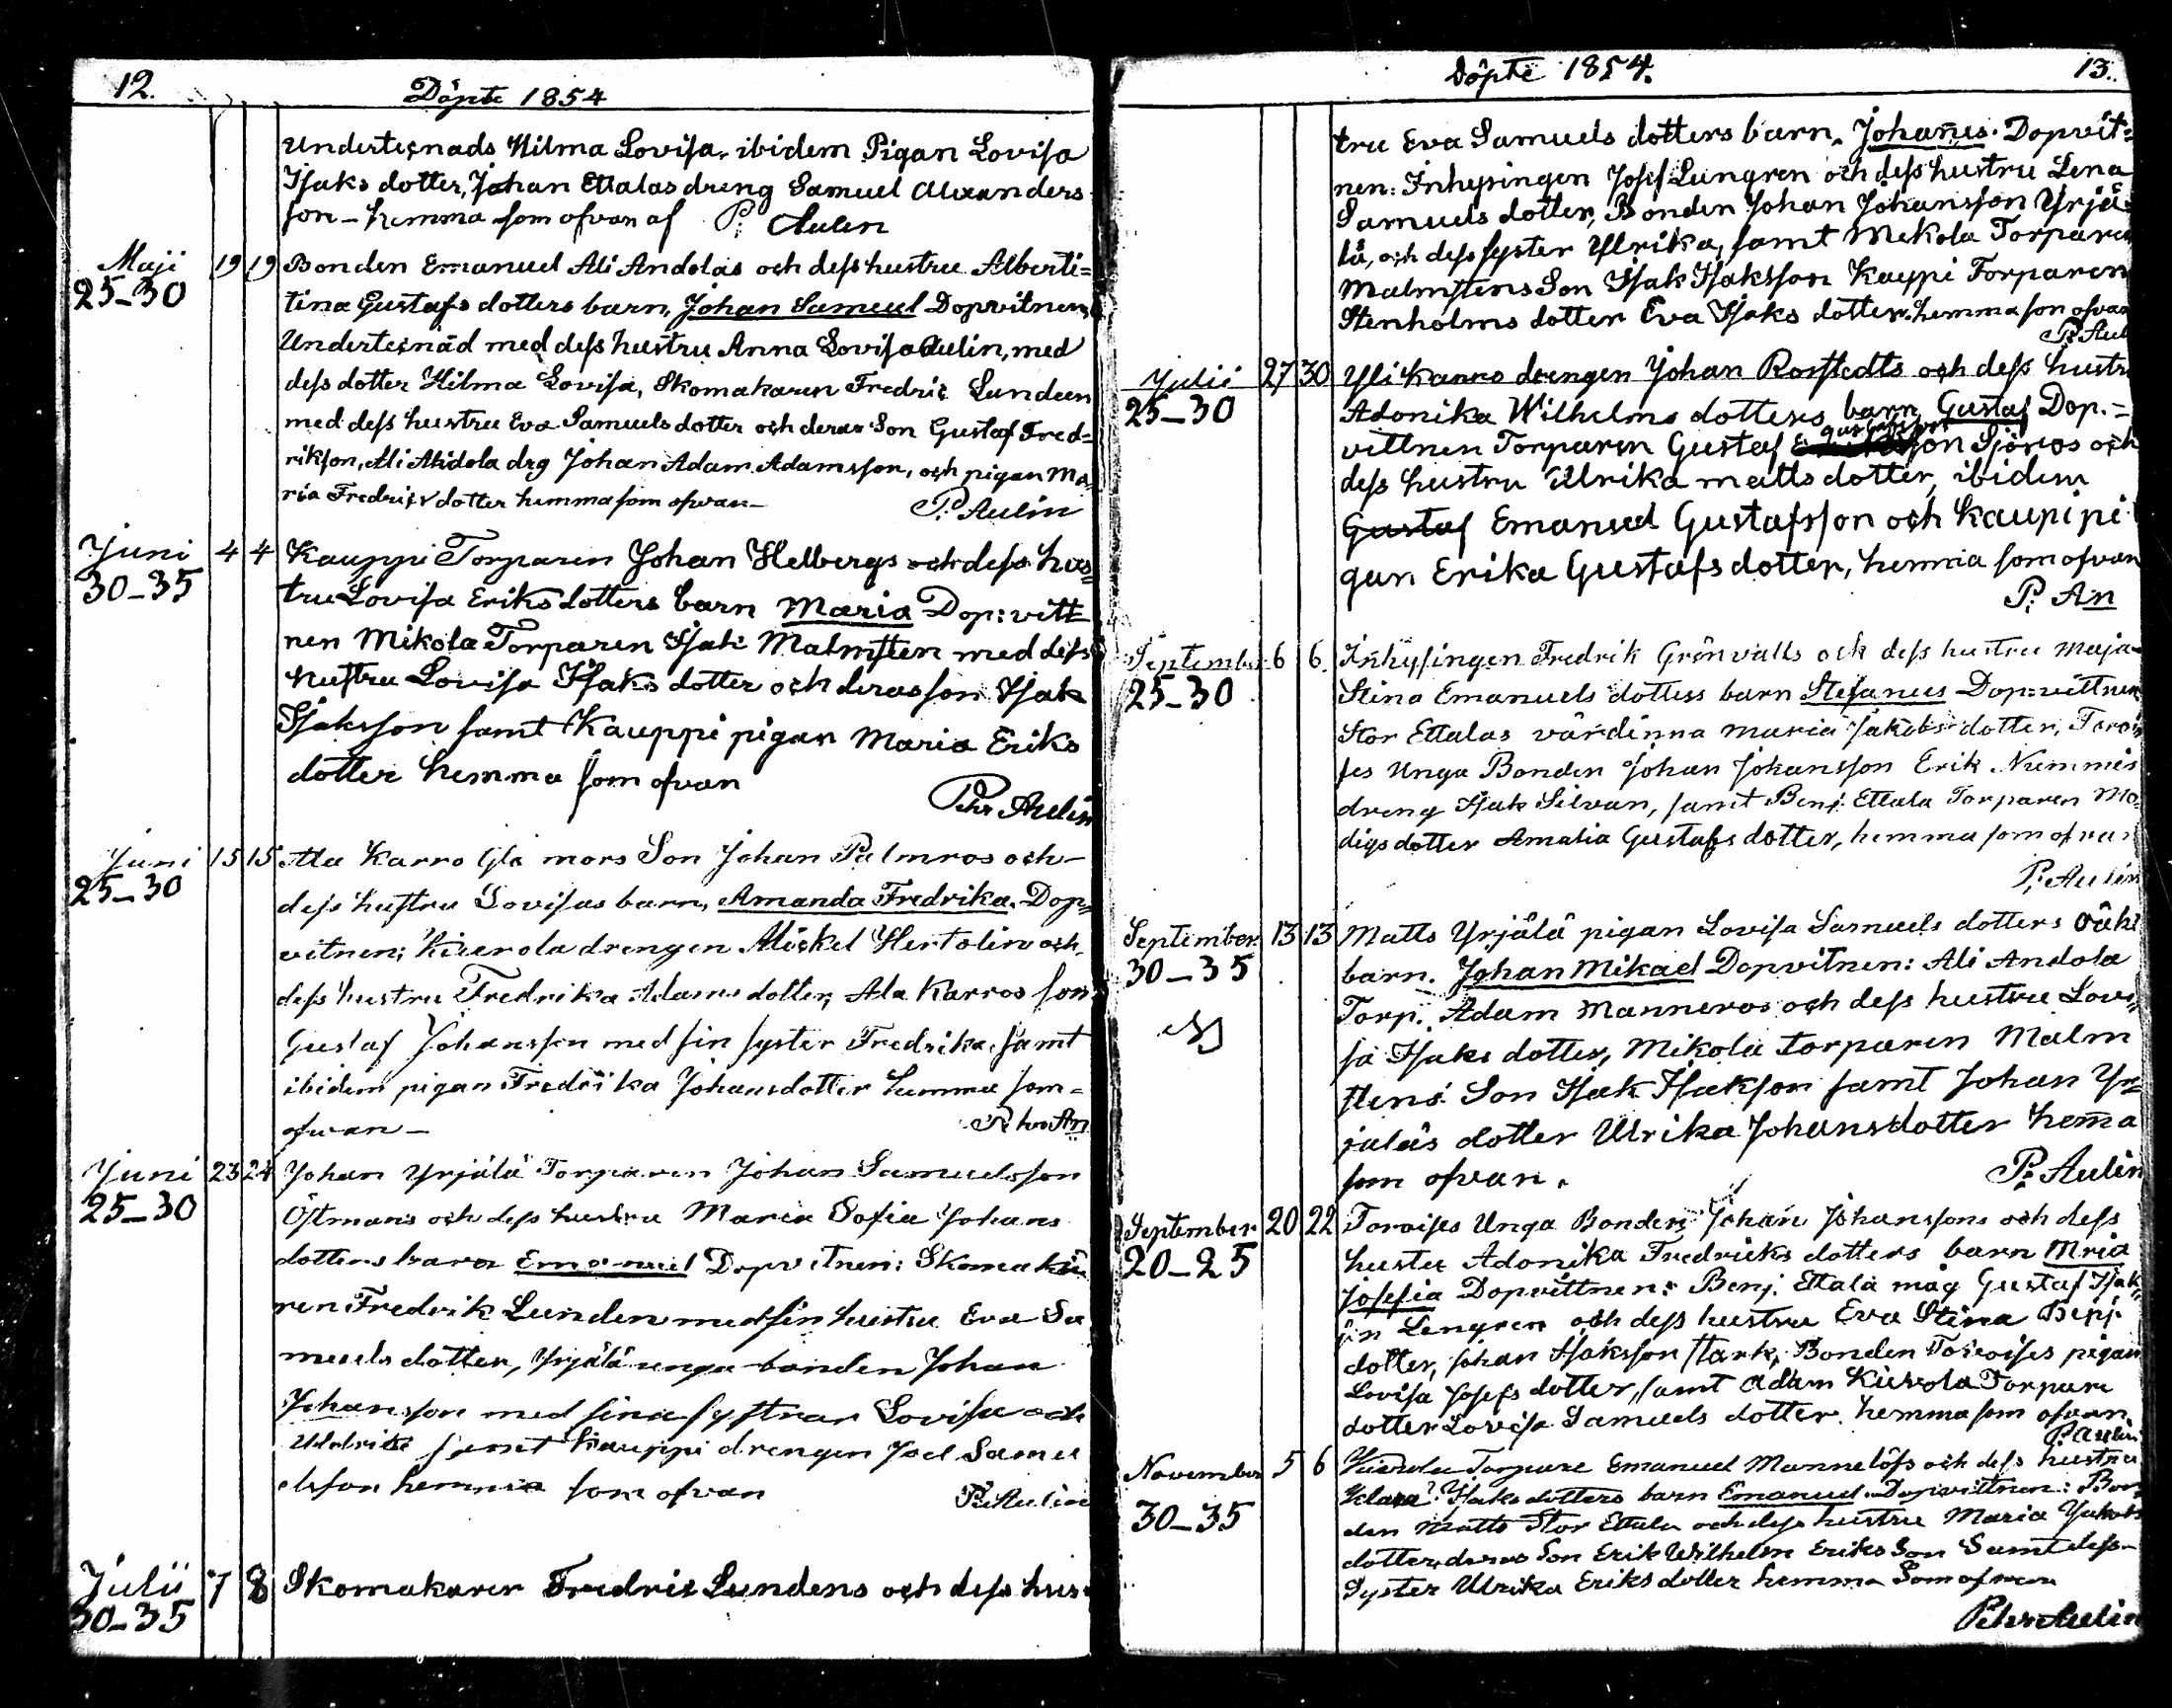 12.
Döpte 1854
Undertecnads Hilma Lovisa, ibidem Pigan Lovisa
Isaks dotter, Johan Ettalas dreng Samuel Alexanders
son - hemma som ofvan af P. Aulin
Maji 19 19 Bonden Emanuel Ali Andolas och dess hustru Alberti=
25-30 tina Gustafs dotters barn, Johan Samuel Dopvitnen,
Undertecnad med dess hustru Anna Lovisa Aulin, med
dess dotter Hilma Lovisa, Skomakaren Fredric Lundeen
med dess hustru Eva Samuels dotter och deras Son Gustaf Fred=
rikson, Ali Andola drg Johan Adam Adamsson, och pigan Ma=
ria Fredrics dotter hemma som ofvan-
P. Aulin
Juni 4 4 Kauppi Torparen Johan Helbergs och dess hus=
30-35 tru Lovisa Eriks dotters barn Maria Dop: vitt
nen Mikola Torparen Isak Malmsten med dess
hustru Lovisa Isaks dotter och deras son Isak
Isaksson samt Kauppi pigan Maria Eriks
dotter hemma som ofvan
Pehr Aulin
Juni 15 15 Ala Karro mors Son Johan Palmros och-
25-30 dess hustru Lovisas barn, Amanda Fredrika. Dop=
vitnen; Kierola drengen Mickel Hertolin och
dess hustru Fredrika Adams dotter, Ala Karros son
Gustaf Johansson med sin syster Fredrika, samt
ibidem pigan Fredrika Johansdotter hemma som=
ofvan-
P. An
Juni 23 24 Johan Yrjälä Torparen Johan Samuelsson
25-30 Östmans och dess hustru Maria Sofia Johans
dotters barn Emanuel Dopvitnen: Skomaka
ren Fredrik Lunden med sin hustru Eva Sa
muels dotter, Yrjälä unga bonden Johan
Johansson med sina systrar Lovisa och
Uldrika samt Kauppi drengen Joel Samu
elsson hemma som ofvan
P. Aulin
Julii 7 8 Skomakaren Fredric Lundens och dess hus=
30-35
Döpte 1854.
13.
tru Eva Samuels dotters barn. Johañes. Dopvit=
nen: Inhysingen Josef Lungren och dess hustru Lena
Samuels dotter, Bonden Johan Johansson Yrjä=
lä, och dess syster Ulrika, samt Mekola Torparen
Malmstens Son Isak Isaksson Kauppi Torparen
Stenholms dotter Eva Isaks dotter. hemma som ofvan
P. Aul
Julii 27 30 Yli Karro drengen Johan Rosstedts och dess hustr
25-30 Adonika Wilhelms dotters barn Gustaf Dop.=
vittnen Torparen Gustaf Gustafsson Sjöros och
dess hustru Ulrika matts dotter, ibidem
Gustaf Emanuel Gustafsson och Kaupi pi
gan Erika Gustafs dotter, hemma som ofvan
P. An
September 6 6. Inhysingen Fredrik Grönvalls och dess hustru Maja
25-30 Stina Emanuels dotters barn Stefanus Dop: vittnen
Stor Ettalas värdinna Maria Jakobs dotter, Toroi
ses Unga Bonden Johan Johansson Erik Nummis
dreng Isak Silvan, samt Benj. Ettala Torparen Mo
digs dotter Amalia Gustafs dotter, hemma som ofvan
P. Aulin
September 13 13 Matts Yrjälä pigan Lovisa Samuels dotters oäkt
30-35 barn. Johan Mikael Dopvitnen: Ali Andola
Torp. Adam Manneros och dess hustru Lovi=
sa Isaks dotter, Mikola torparen Malm
stens Son Isak Isakson samt Johan Yr=
jäläs dotter Ulrika Johansdotter hem̄a
som ofvan.
P. Aulin
September 20 22 Toroises Unga Bonden Johan Johanssons och dess
20-25 hustru Adonika Fredricks dotters barn Mria
Josefia Dopvittnen: Benj. Ettala måg Gustaf Isak
Lengren och dess hustru Eva Stina Benj.
dotter, Johan Isaksson Stark, Bonden Toroises pigan
Lovisa Josefs dotter, samt Adam Kierola Torpare
dotter Lovisa Samuels dotter. hemma som ofvan.
P. Aulin
November 5 6 Kierola Torpare Emanuel Mannelöfs och dess hustru
30-35 Klara Isaks dotters barn Emanuel. Dopvittnen: Bon=
den Matts Stor Ettala och dess hustru Maria Jakobs
dotter, deras Son Erik Wilhelm Eriks Son Samt dess-
Syster Ulrika Eriks dotter hemma Som ofvan
Pehr Aulin